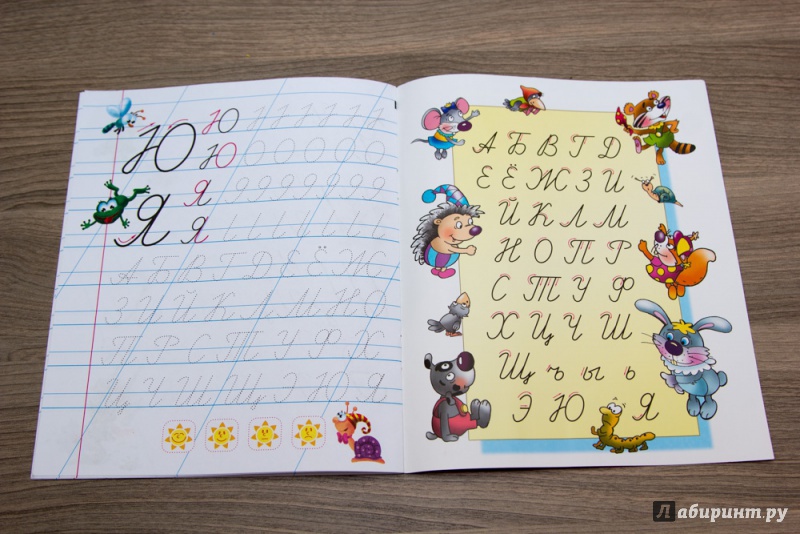 Ю Ю
Ю
Я
Я Я
А Б В Г Д Е Ё Ж
З И Й К Л М Н О
П Р С Т У Ф Х
Ц Ч Ш Щ Э Ю Я
А Б В Г Д
Е Ё Ж З И
Й К Л М
Н О П Р
С Т У Ф
Х Ц Ч Ш
Щ ъ ы ь
Э Ю Я
Лабиринт.ру